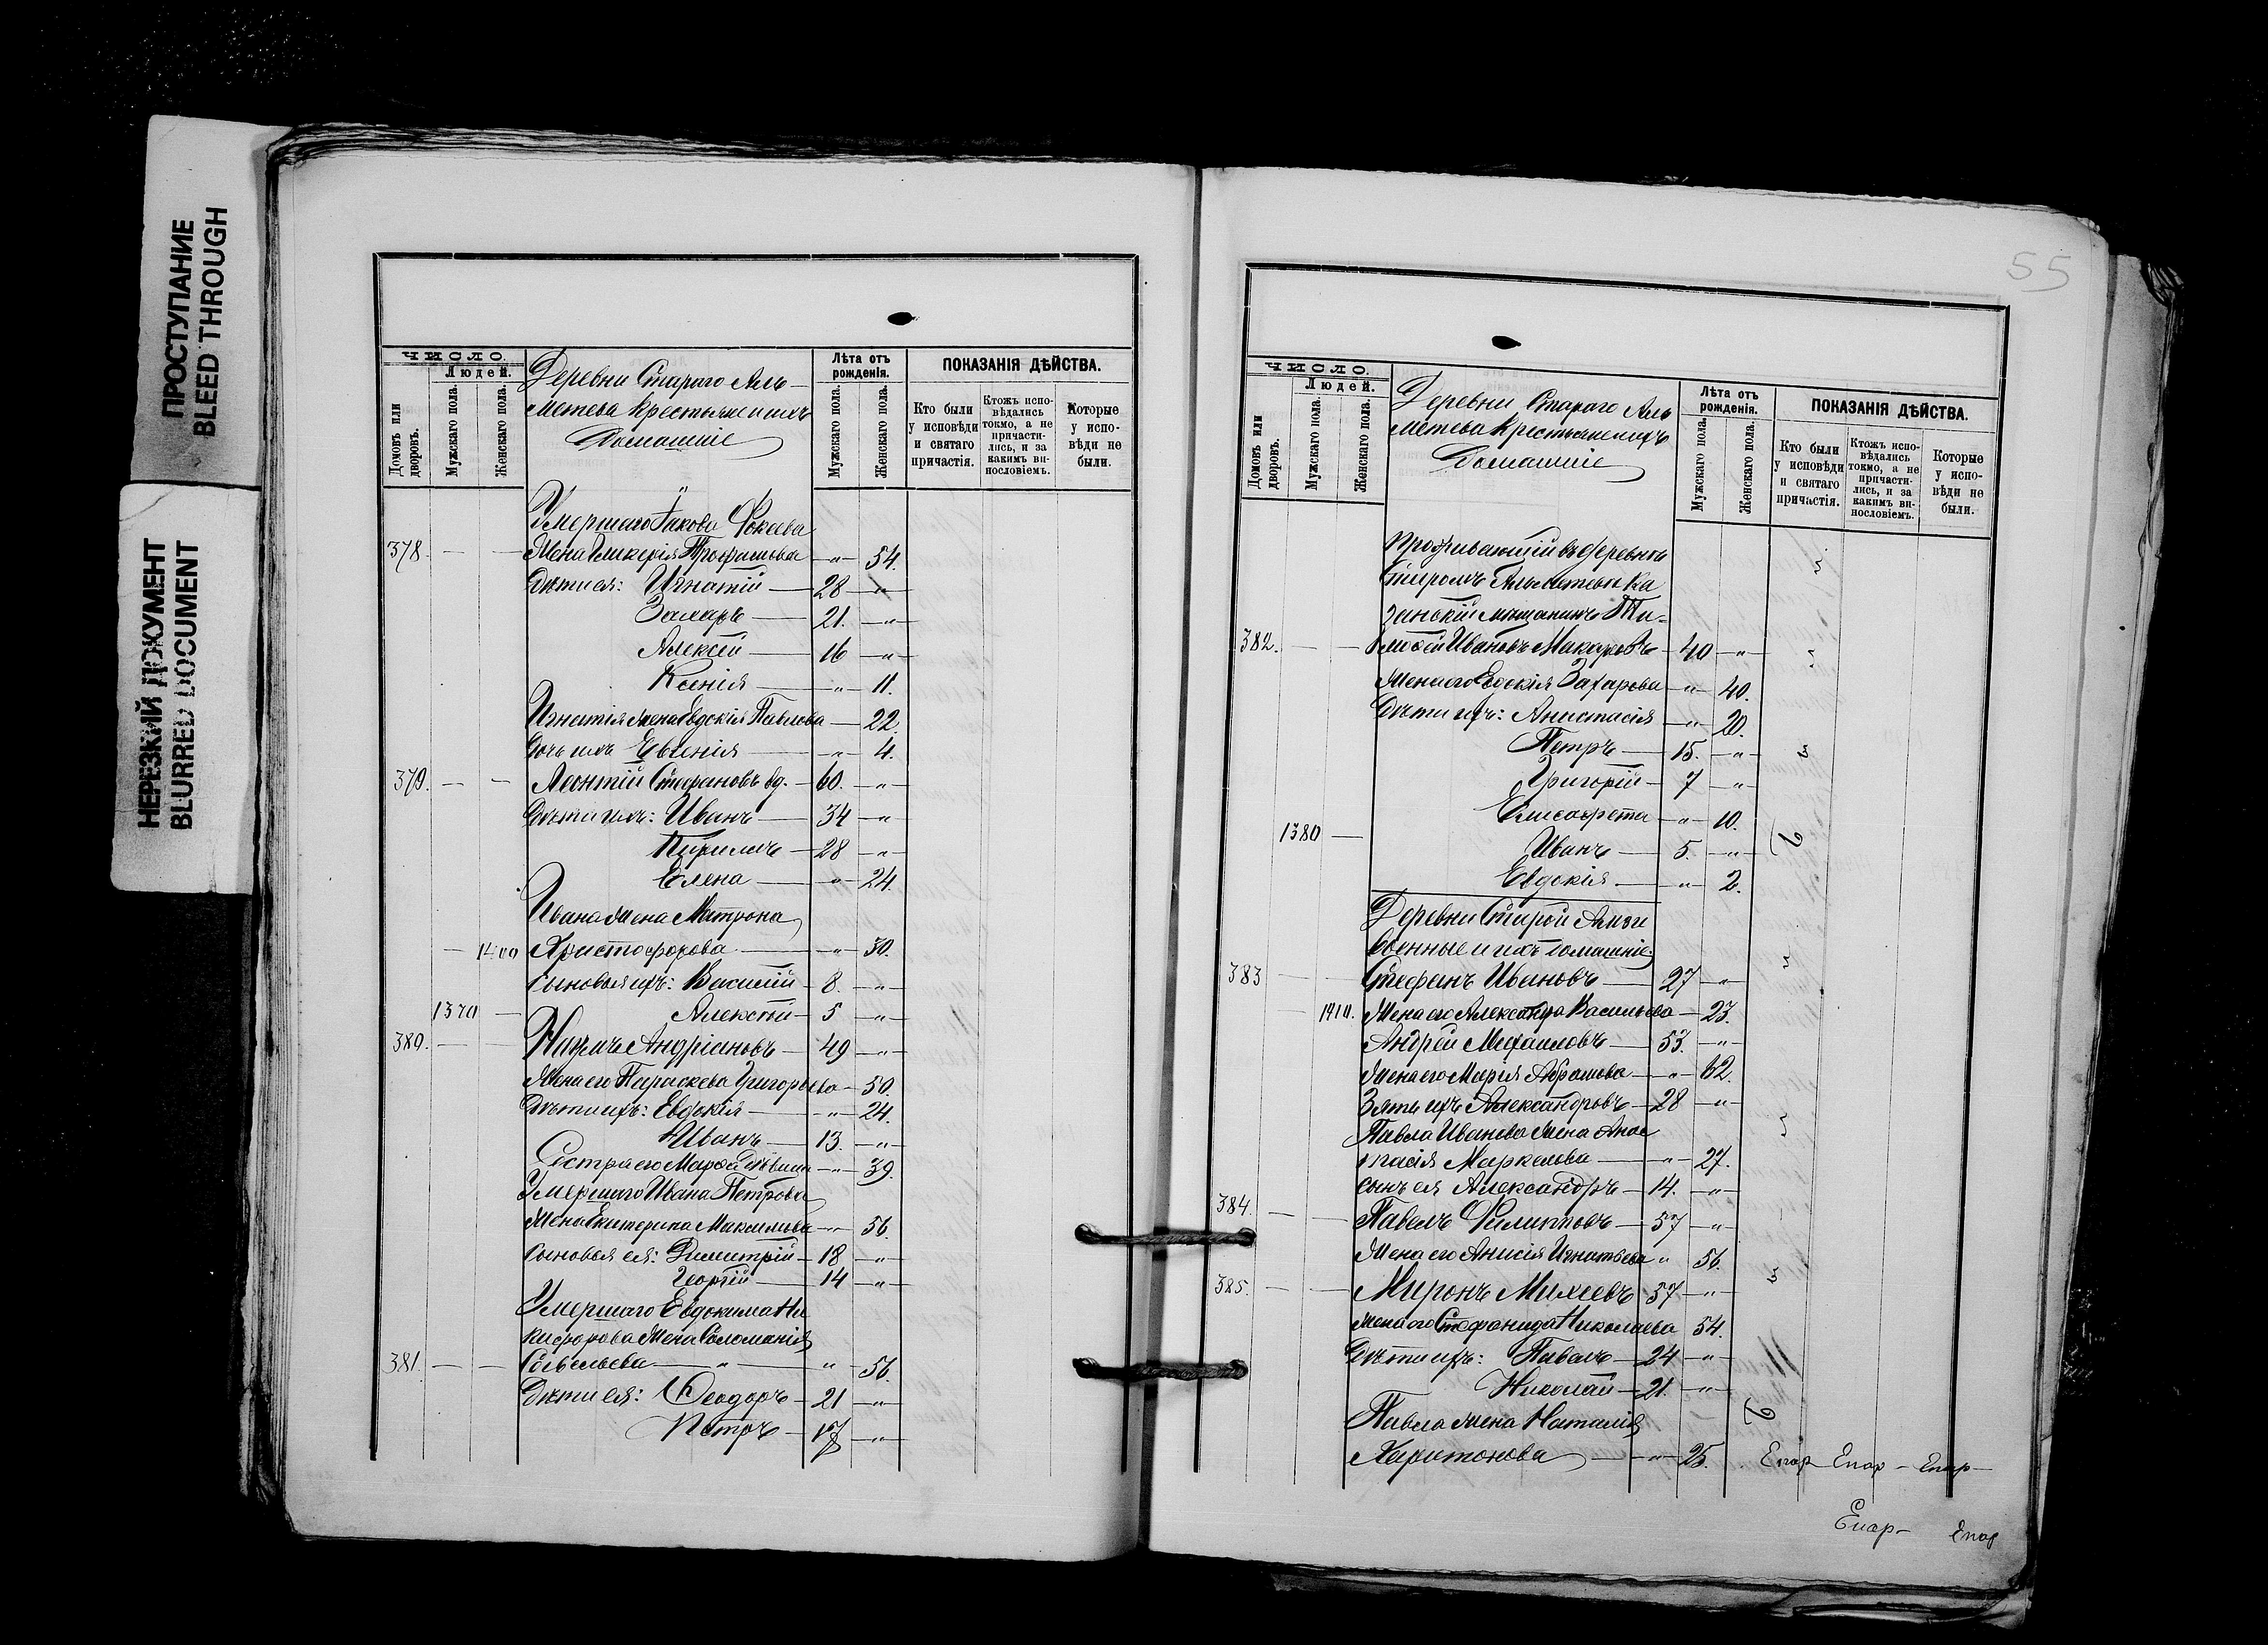 ПРОСТУПАНИЕ
BLEED THROUGH
НЕРЕЗКИЙ ДОКУМЕНТ
BLURRED DOCUMENT
ЧИСЛО.
Людей.
Домовъ или дворовъ.
Мужскаго пола.
Женскаго пола.
Деревни Стараго Аль-
метева крестьяне и ихъ
Домашніе
Лѣта отъ рожденія.
Мужскаго пола.
Женскаго пола.
ПОКАЗАНІЯ ДѢЙСТВА.
Кто были у исповѣди и святаго причастія.
Ктожъ испо-вѣдались токмо, а не причасти-лись, и за какимъ ви-нословіемъ.
Которые у испо-вѣди не были.
Умершаго Іакова Фокеева
378. — — Жена Гликерія Трофимова — „ — 54.
Дѣти ея: Игнатій — 28 — „
Захаръ — 21. — „ —
Алексѣй — 16 — „ —
Ксенія — „ — 11.
Игнатія жена Евдокія Павлова — 22.
Дочь ихъ Евгенія — „ — 4.
379. — — Леонтій Стефановъ вд. — 60. — „ —
Дѣти ихъ: Иванъ — 34 — „
Кириллъ — 28 — „ —
Елена — „ — 24.
Ивана жена Матрона
— 1400 Христофорова — „ — 30.
Сыновья ихъ: Василій — 8. — „ —
1370 — Алексѣй — 5 — „ —
380. — — Наумъ Андріановъ — 49 — „ —
Жена его Параскева Григорьева — 50.
Дѣти ихъ: Евдокія — „ — 24.
Иванъ — 13. — „ —
Сестра его Марѳа дѣвица — „ — 39.
Умершаго Ивана Петрова
Жена Екатерина Максимова — „ — 56.
Сыновья ея: Димитрій — 18 — „ —
Георгій — 14 — „ —
Умершаго Евдокима Ни
кифорова жена Соломанія
381. — — Савельева — „ — „ — 56.
Дѣти ея: Ѳеодоръ — 21 — „ —
Петръ — 17 — „ —
55
ЧИСЛО.
Людей.
Домовъ или дворовъ.
Мужскаго пола.
Женскаго пола.
Деревни Стараго Аль
метева крестьяне и ихъ
Домашніе
Лѣта отъ рожденія.
Мужскаго пола.
Женскаго пола.
ПОКАЗАНІЯ ДѢЙСТВА.
Кто были у исповѣди и святаго причастія.
Ктожъ испо-вѣдались токмо, а не причасти-лись, и за какимъ ви-нословіемъ.
Которые у испо-вѣди не были.
Проживающій въ деревнѣ
Старомъ Альметевѣ Ка
занскій мѣщанинъ Ти-
382. — — моѳей Ивановъ Макаровъ — 40 — „ —
Жена его Евдокія Захарова — „ — 40.
Дѣти ихъ: Анастасія — „ — 20.
Петръ — 15. — „ —
Григорій — 7 — „ —
Елисавета — „ — 10.
1380 — Иванъ — 5. — „ —
Евдокія — „ — 2.
Деревни Старой Амзи
военные и ихъ домашніе
383 — — Стефанъ Ивановъ — 27 — „ —
— 1410. Жена его Александра Васильева — 23.
Андрей Михаиловъ — 53. — „ —
Жена его Марія Абрамова — „ — 62.
Зять ихъ Александровъ — 28 — „ —
Павла Иванова жена Анас
тасія Маркелова — „ — 27.
сынъ ея Александръ — 14. — „ —
384. — — Павелъ Филипповъ — 57 — „ —
Жена его Анисія Игнатьева „ 56.
385. — — Миронъ Михеевъ 57 — „ —
Жена его Стефанида Николаева 54.
Дѣти ихъ: Павелъ — 24 — „ —
Николай — 21. — „ —
Павла жена Наталія
Харитонова — „ — 25.
Епар Епар - Епар -
Епар - Епар